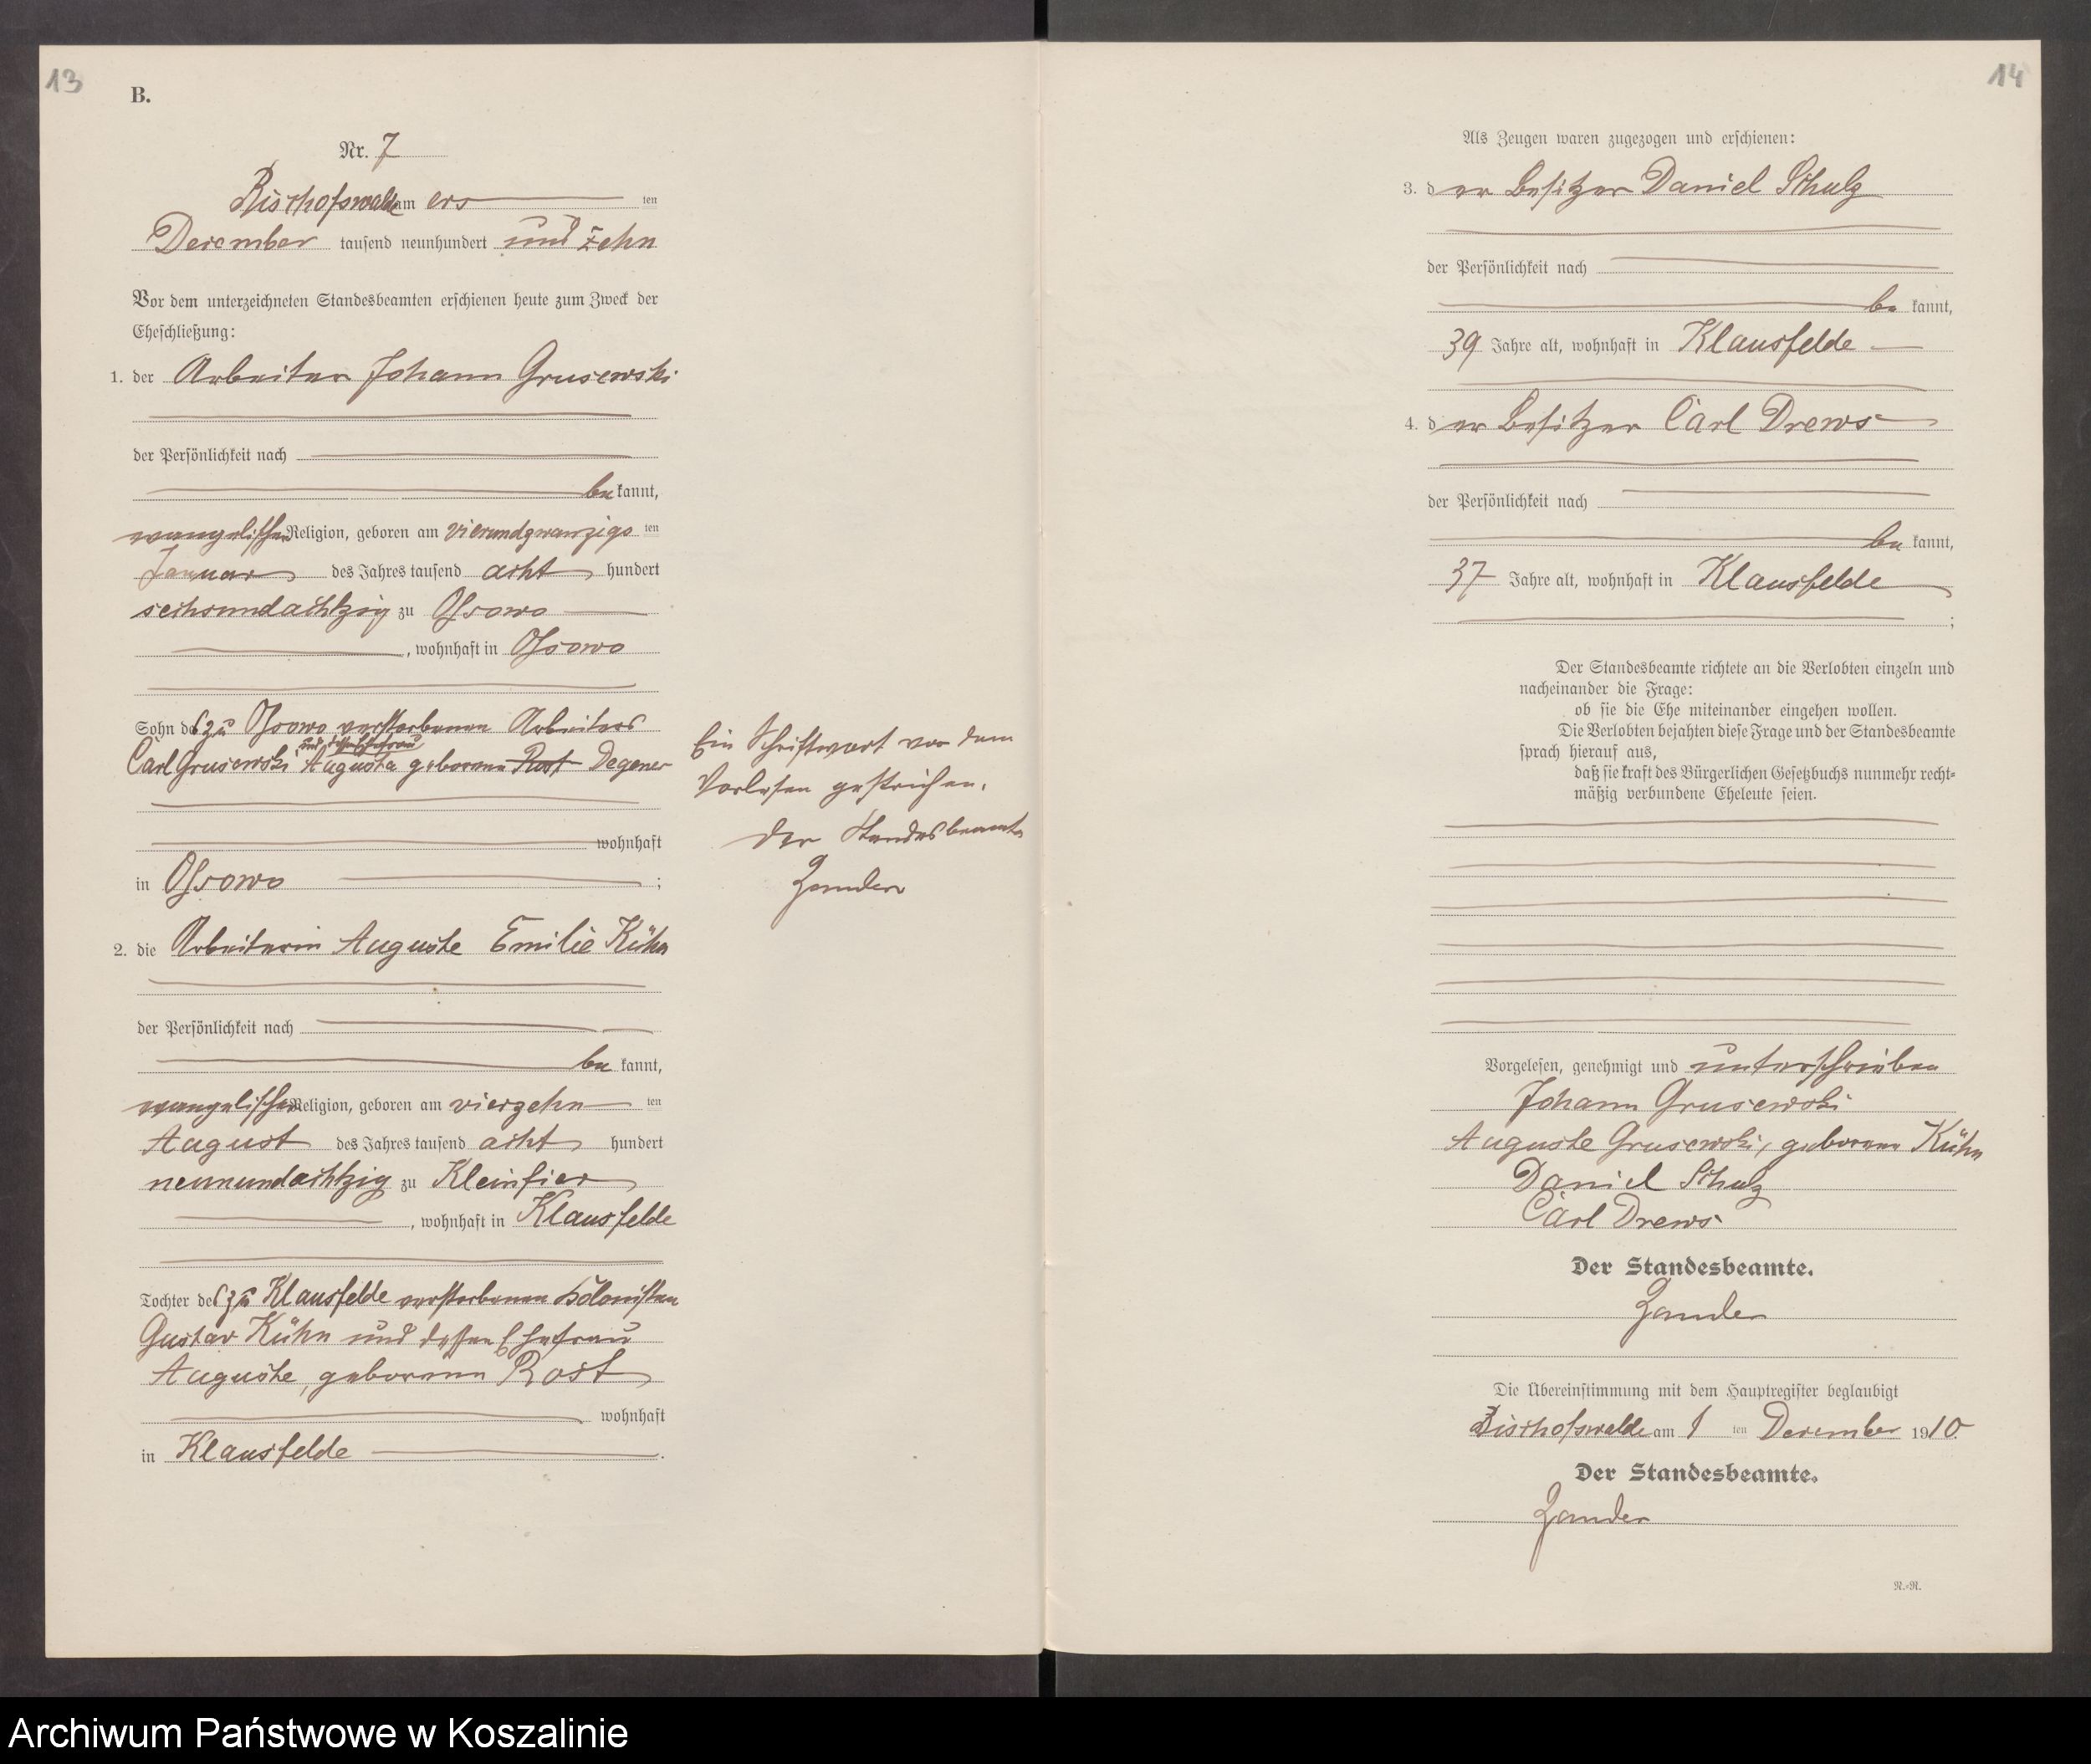 13
B.
Nr. 7
Bischofswalde am ers ten
Dezember tausend neunhundert und zehn
Vor dem unterzeichneten Standesbeamten erschienen heute zum Zweck der
Eheschließung:
1. der Arbeiter Johann Grusewski
der Persönlichkeit nach
be kannt,
evangelischer Religion, geboren am vierundzwanzigs ten
Januar des Jahres tausend acht hundert
sechsundachtzig zu Ossowo
, wohnhaft in Ossowo
Sohn des zu Ossowo verstorbenen Arbeiters
und dessen Ehefrau
Carl Grusewski Augusta geborene Rost Degener
wohnhaft
in Ossowo ;
Ein Schriftwort vor dem
Vorlesen gestrichen.
Der Standesbeamte
Zander
2. die Arbeiterin Auguste Emilie Kühn
der Persönlichkeit nach
be kannt,
evangelischer Religion, geboren am vierzehn ten
August des Jahres tausend acht hundert
neunundachtzig zu Kleinfier
, wohnhaft in Klausfelde
Tochter des zu Klausfelde verstorbenen Kolonisten
Gustav Kühn und dessen Ehefrau
Auguste, geborenen Rost
wohnhaft
in Klausfelde .
14
Als Zeugen waren zugezogen und erschienen:
3. der Besitzer Daniel Schulz
der Persönlichkeit nach
be kannt,
39 Jahre alt, wohnhaft in Klausfelde
4. der Besitzer Carl Drews
der Persönlichkeit nach
be kannt,
37 Jahre alt, wohnhaft in Klausfelde
;
Der Standesbeamte richtete an die Verlobten einzeln und
nacheinander die Frage:
ob sie die Ehe miteinander eingehen wollen.
Die Verlobten bejahten diese Frage und der Standesbeamte
sprach hierauf aus,
daß sie kraft des Bürgerlichen Gesetzbuchs nunmehr recht-
mäßig verbundene Eheleute seien.
Vorgelesen, genehmigt und unterschrieben
Johann Grusewski
Auguste Grusewski, geborene Kühn
Daniel Schulz
Carl Drews
Der Standesbeamte.
Zander
Die Übereinstimmung mit dem Hauptregister beglaubigt
Bischofswalde am 1 ten Dezember 1910.
Der Standesbeamte.
Zander
N.-N.
Archiwum Państwowe w Koszalinie